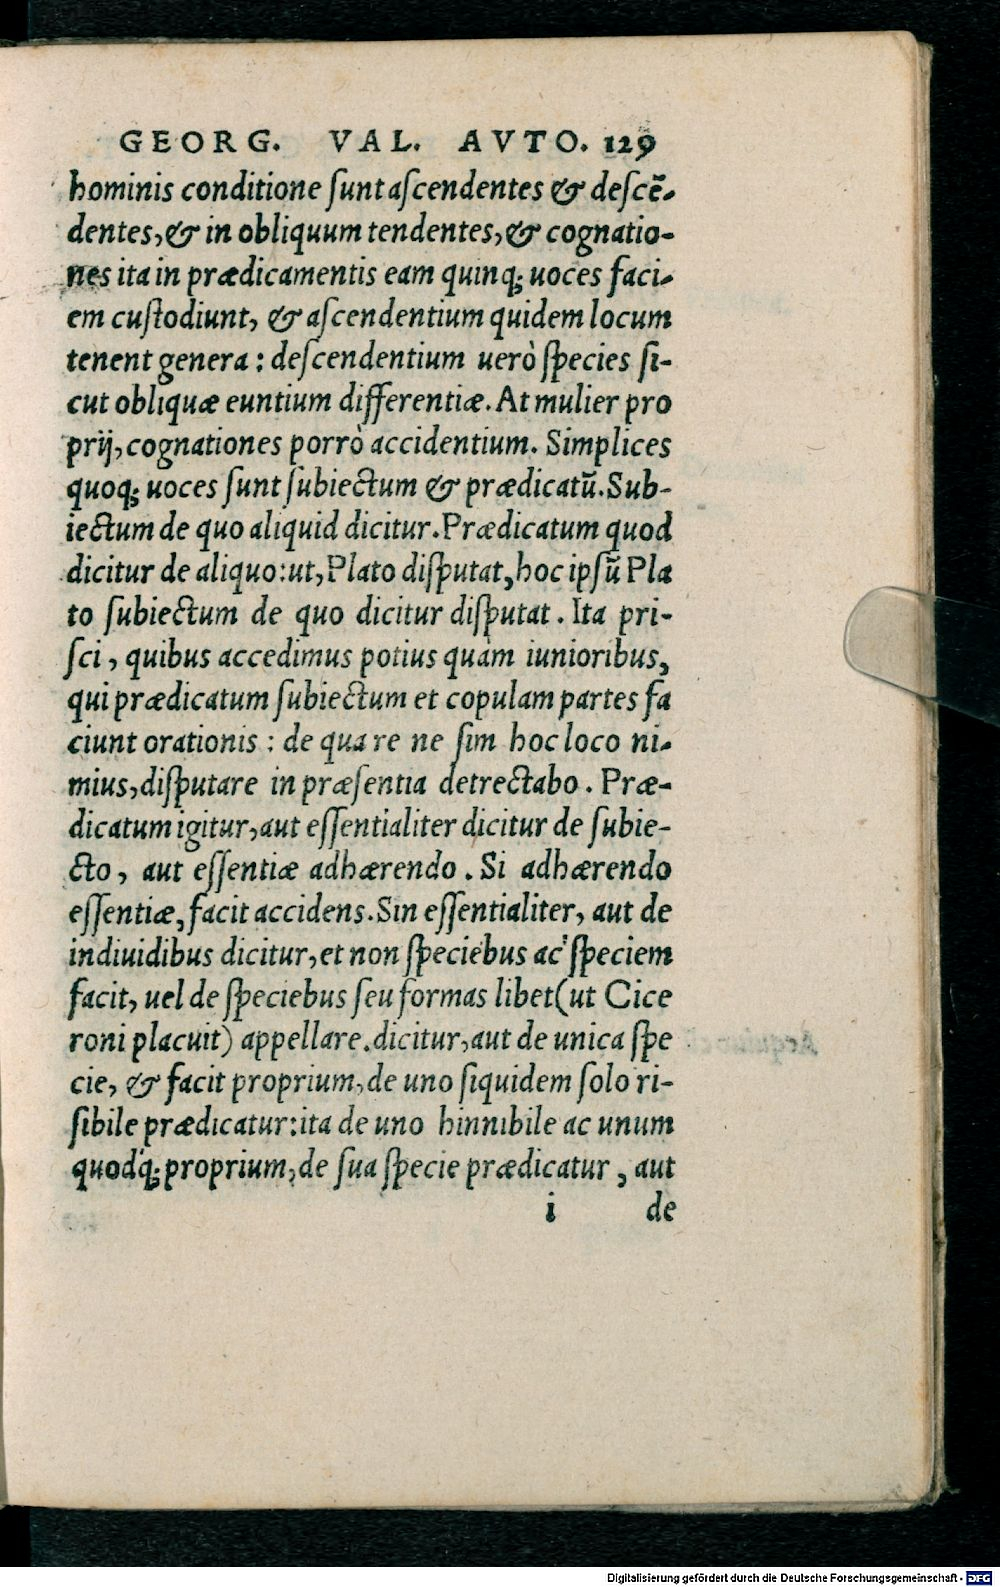 GEORG. VAL. AVTO. 129
hominis conditione ſunt aſcendentes & deſcē-
dentes, & in obliquum tendentes, & cognatio-
nes ita in prædicamentis eam quinq; uoces faci-
em cuſtodiunt, & aſcendentium quidem locum
tenent genera : deſcendentium uerò ſpecies ſi-
cut obliquæ euntium differentiæ. At mulier pro
prij, cognationes porrò accidentium. Simplices
quoq; uoces ſunt ſubiectum & prædicatū. Sub-
iectum de quo aliquid dicitur. Prædicatum quod
dicitur de aliquo: ut, Plato diſputat, hoc ipſū Pla
to ſubiectum de quo dicitur diſputat. Ita pri-
ſci, quibus accedimus potius quàm iunioribus,
qui prædicatum ſubiectum et copulam partes fa
ciunt orationis : de qua re ne ſim hoc loco ni-
mius, diſputare in præſentia detrectabo. Præ-
dicatum igitur, aut eſſentialiter dicitur de ſubie-
cto, aut eſſentiæ adhærendo. Si adhærendo
eſſentiæ, facit accidens. Sin eſſentialiter, aut de
indiuidibus dicitur, et non ſpeciebus ac ſpeciem
facit, uel de ſpeciebus ſeu formas libet (ut Cice
roni placuit) appellare. dicitur, aut de unica ſpe
cie, & facit proprium, de uno ſiquidem ſolo ri-
ſibile prædicatur: ita de uno hinnibile ac unum
quodq; proprium, de ſua ſpecie prædicatur, aut
i de
Digitalisierung gefördert durch die Deutsche Forschungsgemeinschaft - DFG